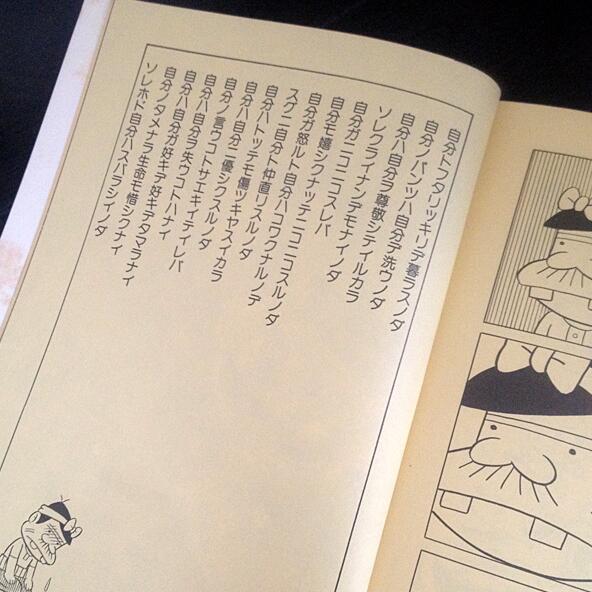 自分トフタリッキリデ暮ラスノダ
自分ノパンツハ自分デ洗ウノダ
自分ハ自分ヲ尊敬シテイルカラ
ソレクライナンデモナイノダ
自分ガニコニコスレバ
自分モ嬉シクナッテニコニコスルノダ
自分ガ怒ルト自分ハコワクナルノデ
スグニ自分ト仲直リスルノダ
自分ハトッテモ傷ツキヤスイカラ
自分ハ自分ニ優シクスルノダ
自分ノ言ウコトサエキイテイレバ
自分ハ自分ヲ失ウコトハナイ
自分ハ自分ガ好キデ好キデタマラナイ
自分ノタメナラ生命モ惜シクナイ
ソレホド自分ハスバラシイノダ